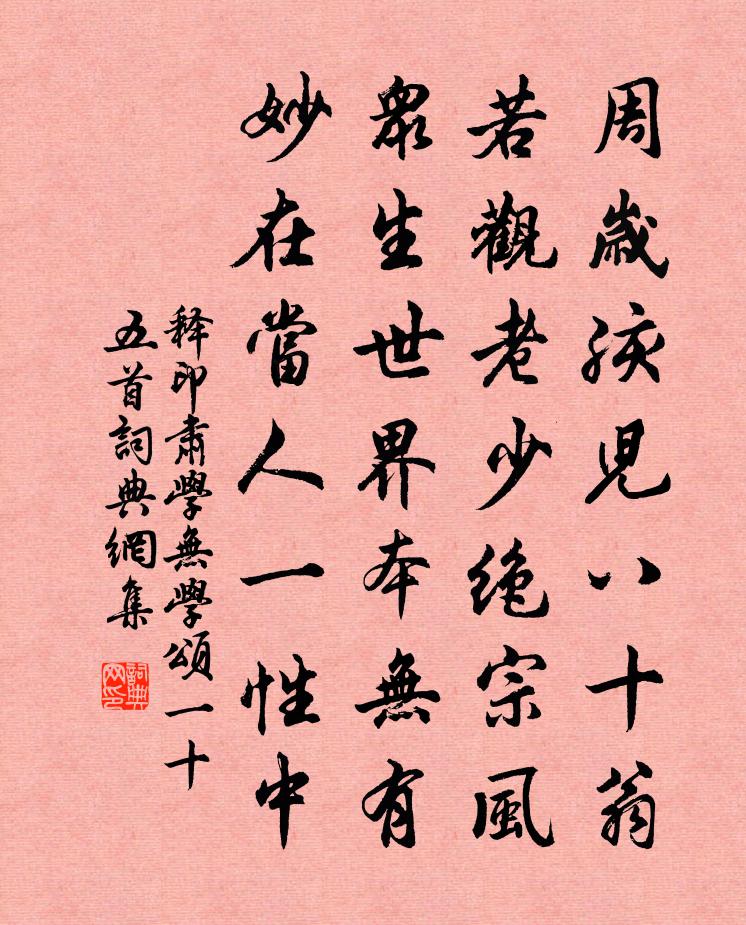 周歲孩兒八十翁
若觀老少絶宗風
衆生世界本無有
妙在當人一性中
释印肅學無學頌一十
五首詞典網集
詞典网印